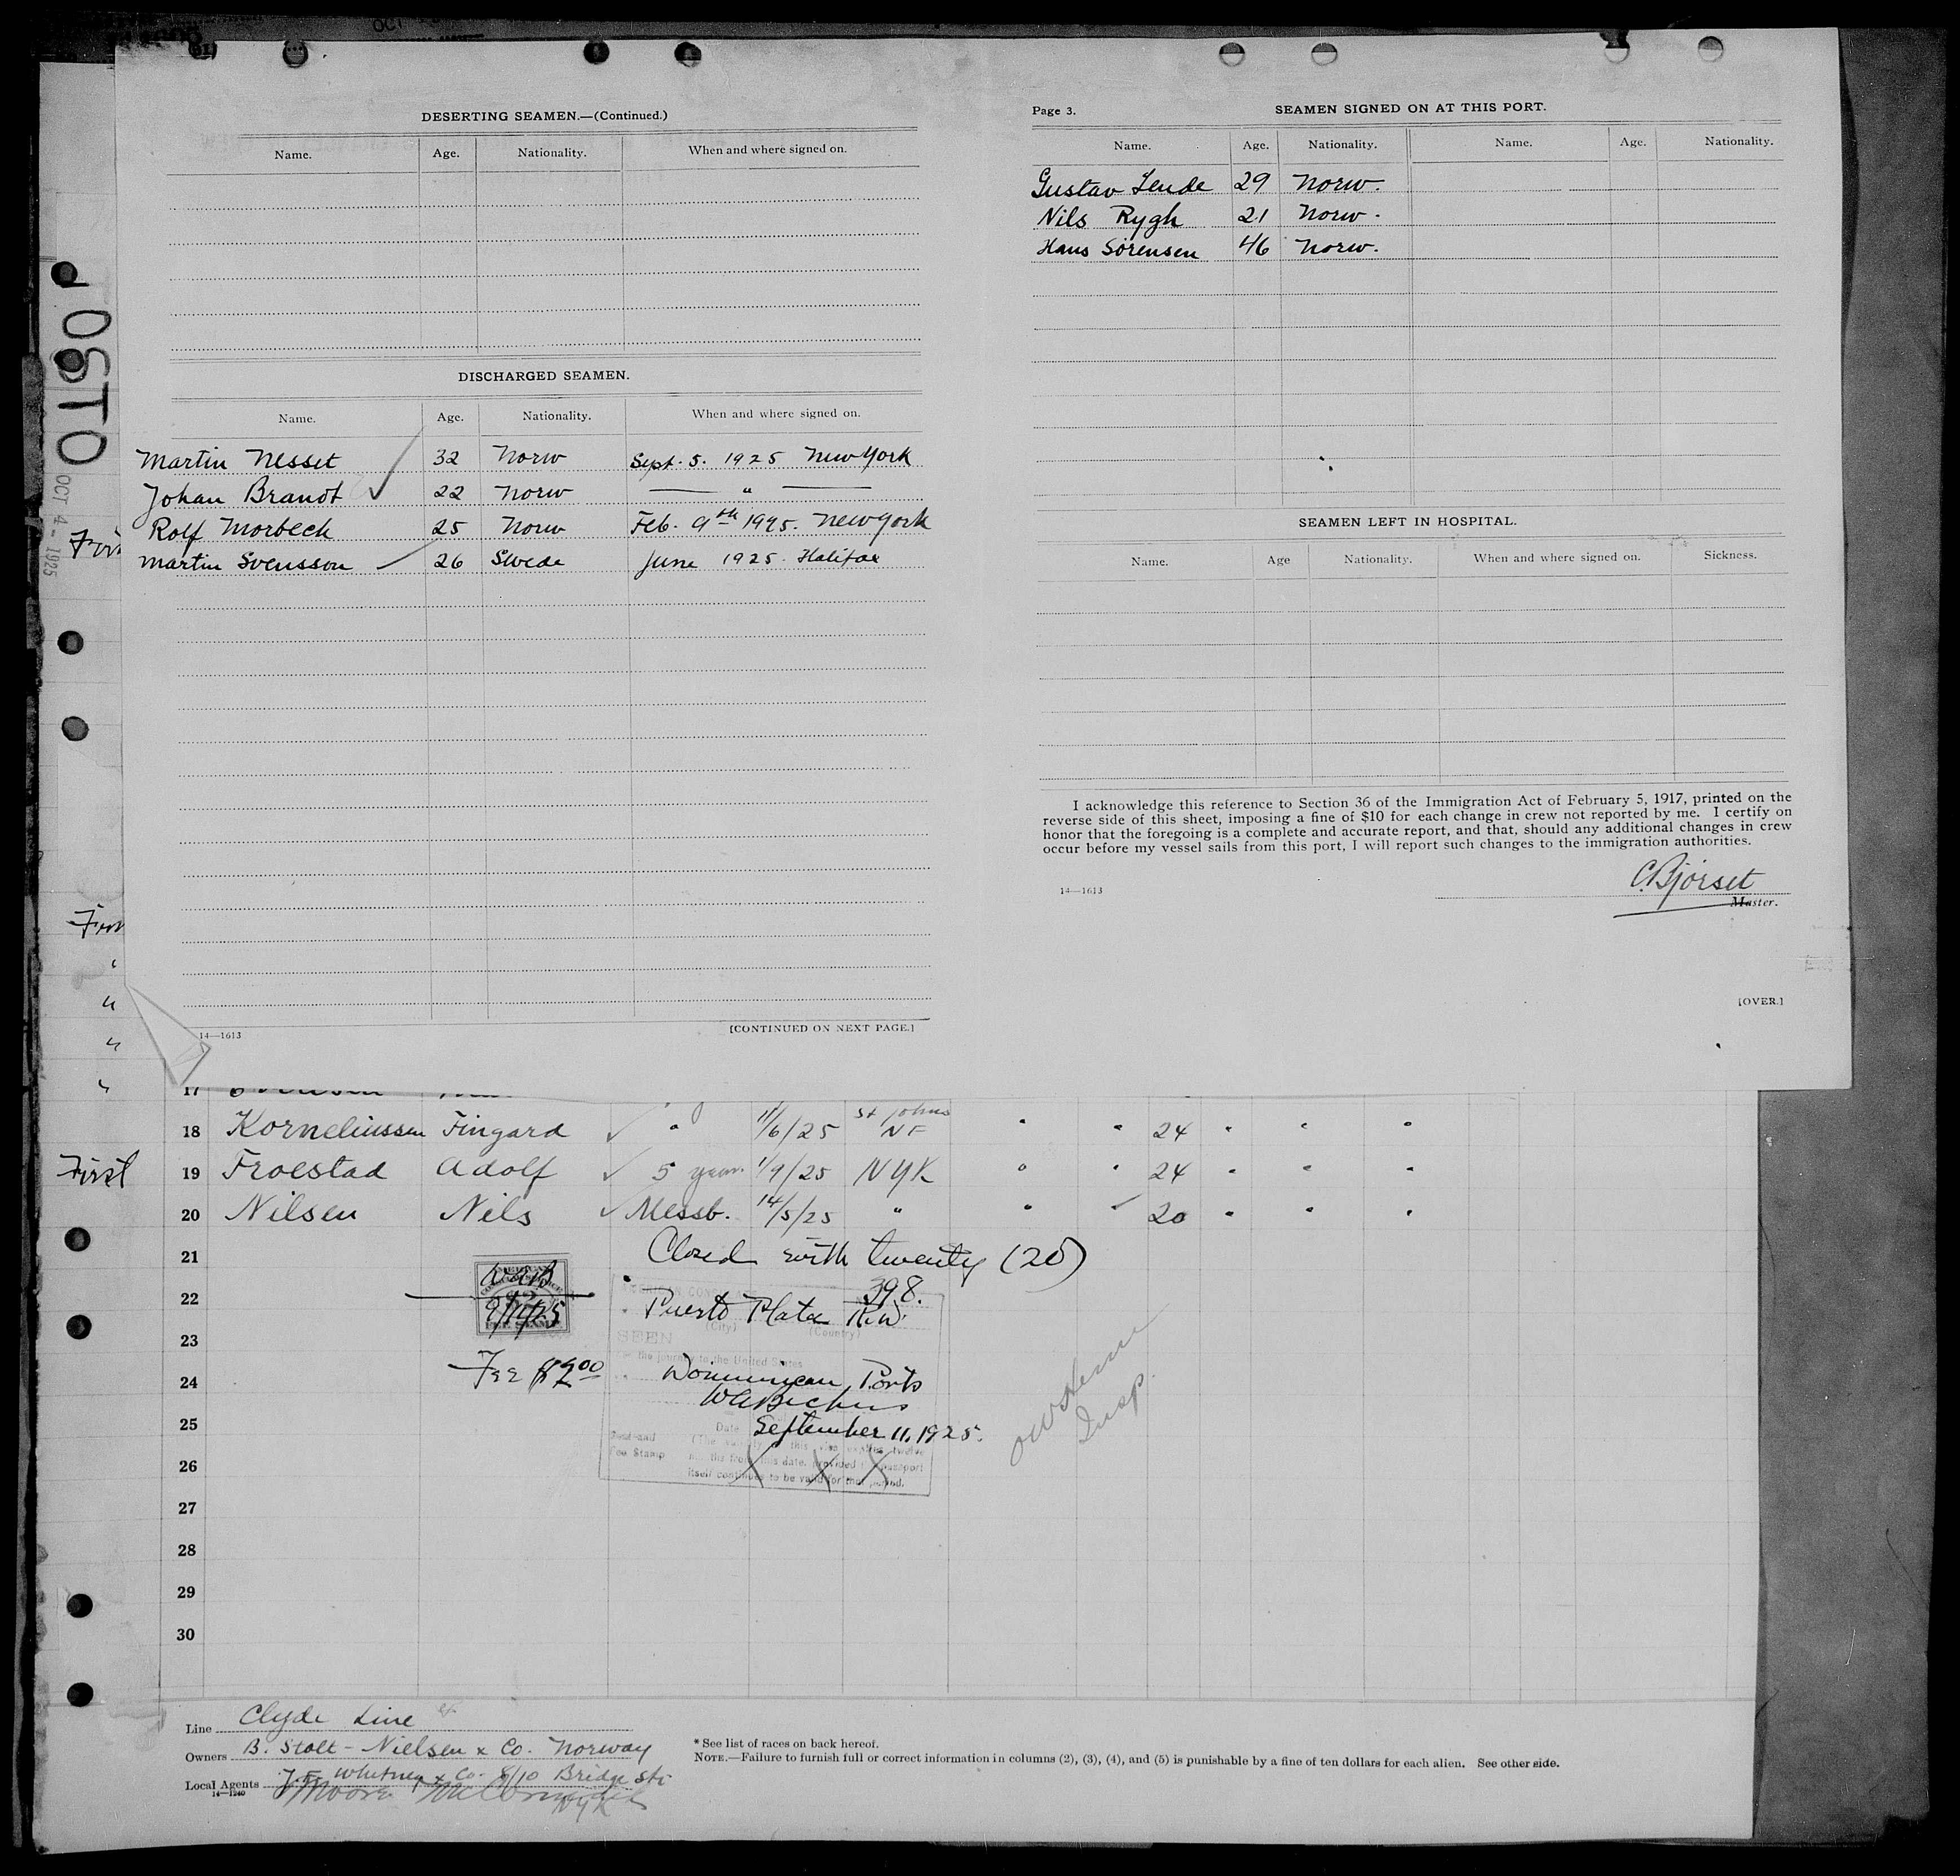 DESERTING SEAMEN.—(Continued.)
Name. Age. Nationality. When and where signed on.
DISCHARGED SEAMEN.
Name. Age. Nationality. When and where signed on.
Martin Nesset 32 Norw Sept. 5. 1925 New York
Johan Brandt 22 Norw "
Rolf Morbech 25 Norw Feb. 9th 1925. New York
Martin Svensson 26 Swede June 1925. Halifax
14—1613 [CONTINUED ON NEXT PAGE.]
Page 3. SEAMEN SIGNED ON AT THIS PORT.
Name. Age. Nationality. Name. Age. Nationality.
Gustav Lende 29 Norw.
Nils Rygh 21 Norw.
Hans Sörensen 46 Norw.
SEAMEN LEFT IN HOSPITAL.
Name. Age Nationality. When and where signed on. Sickness.
I acknowledge this reference to Section 36 of the Immigration Act of February 5, 1917, printed on the
reverse side of this sheet, imposing a fine of $10 for each change in crew not reported by me. I certify on
honor that the foregoing is a complete and accurate report, and that, should any additional changes in crew
occur before my vessel sails from this port, I will report such changes to the immigration authorities.
C. Bjørset
14—1613 Master.
[OVER.]
OCT 4 - 1925
17
18 Korneliussen Fingard " 11/6/25 St Johns NF " " 24 " " "
First 19 Froestad Adolf 5 year. 1/9/25 NYK " " 24 " " "
20 Nilsen Nils Messb. 14/5/25 " " " 20 " " "
21 Closed with twenty (20)
22 398.
Puerto Plata R.D.
(City) (Country)
23 SEEN
the journey to the United States
Fee $2.00
24 Dominican Ports
25 Date September 11, 1925.
Fee Stamp
26 itself continues to be valid for that period.
9/11/25
FEE STAMP
Insp.
27
28
29
30
Line Clyde Line
Owners B. Stolt-Nielsen & Co. Norway
Local Agents J. F. Whitney & Co. 8/10 Bridge Str.
14—1240 Moore NYK
* See list of races on back hereof.
NOTE.—Failure to furnish full or correct information in columns (2), (3), (4), and (5) is punishable by a fine of ten dollars for each alien. See other side.